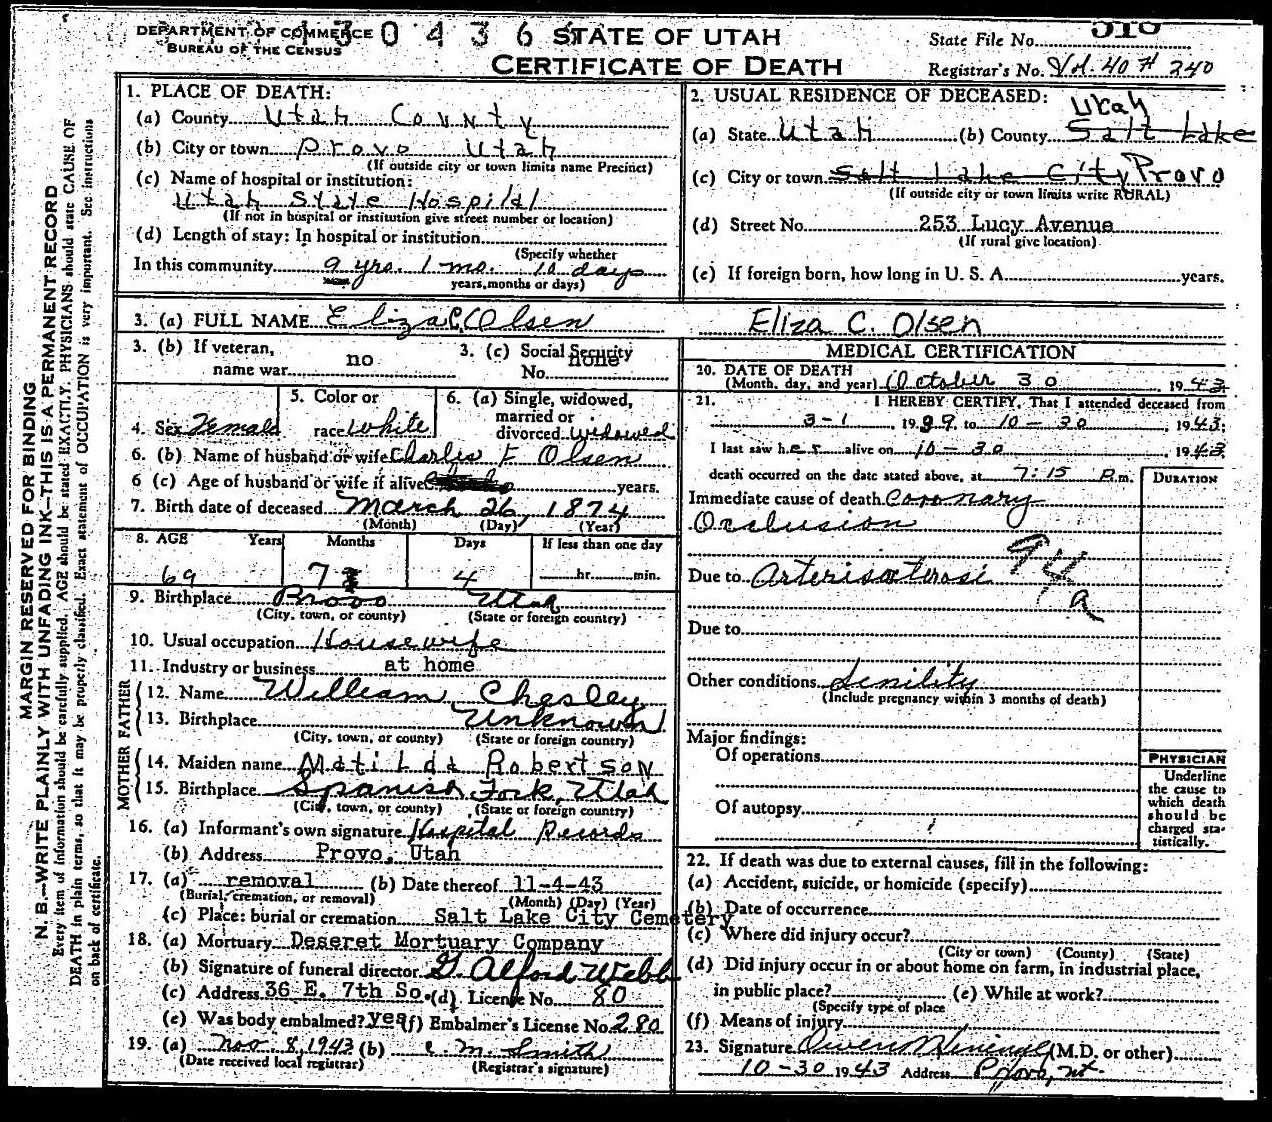 DEPARTMENT OF COMMERCE
BUREAU OF THE CENSUS
130436
STATE OF UTAH
CERTIFICATE OF DEATH
State File No. 
Registrar's No. Vol. 40 # 240
MARGIN RESERVED FOR BINDING
N. B.—WRITE PLAINLY WITH UNFADING INK—THIS IS A PERMANENT RECORD
Every item of information should be carefully supplied. AGE should be stated EXACTLY. PHYSICIANS should state CAUSE OF
DEATH in plain terms, so that it may be properly classified. Exact statement of OCCUPATION is very important. See instructions
on back of certificate.
1. PLACE OF DEATH:
(a) County Utah County
(b) City or town Provo Utah
(If outside city or town limits name Precinct)
(c) Name of hospital or institution:
Utah State Hospital
(If not in hospital or institution give street number or location)
(d) Length of stay: In hospital or institution
(Specify whether
In this community 9 yrs. 1 mo. 10 days
years, months or days)
2. USUAL RESIDENCE OF DECEASED:
Utah
(a) State Utah (b) County Salt Lake
(c) City or town Salt Lake City Provo
(If outside city or town limits write RURAL)
(d) Street No. 253 Lucy Avenue
(If rural give location)
(e) If foreign born, how long in U. S. A. years.
3. (a) FULL NAME Eliza C. Olsen
Eliza C. Olsen
3. (b) If veteran,
name war no
3. (c) Social Security
No. none
4. Sex Female
5. Color or
race White
6. (a) Single, widowed,
married or
divorced widowed
6. (b) Name of husband or wife Charles E Olsen
6 (c) Age of husband or wife if alive years.
7. Birth date of deceased March 26, 1874
(Month) (Day) (Year)
8. AGE Years Months Days If less than one day
69 7 4 hr. min.
9. Birthplace Provo Utah
(City, town, or county) (State or foreign country)
10. Usual occupation Housewife
11. Industry or business at home
FATHER
12. Name William Chesley
13. Birthplace Unknown
(City, town, or county) (State or foreign country)
MOTHER
14. Maiden name Matilda Robertson
15. Birthplace Spanish Fork, Utah
(City, town, or county) (State or foreign country)
16. (a) Informant's own signature Hospital Records
(b) Address Provo, Utah
17. (a) removal (b) Date thereof 11-4-43
(Burial, cremation, or removal) (Month) (Day) (Year)
(c) Place: burial or cremation Salt Lake City Cemetery
18. (a) Mortuary Deseret Mortuary Company
(b) Signature of funeral director G. Alford Webb
(c) Address 36 E. 7th So. (d) License No. 80
(e) Was body embalmed? yes (f) Embalmer's License No. 280
19. (a) Nov 8, 1943 (b) C. M. Smith
(Date received local registrar) (Registrar's signature)
MEDICAL CERTIFICATION
20. DATE OF DEATH
(Month, day, and year) October 30 1943
21. I HEREBY CERTIFY, That I attended deceased from
3-1, 1939, to 10-30, 1943;
I last saw her alive on 10-30 1943
death occurred on the date stated above, at 7:15 P.m.
DURATION
Immediate cause of death Coronary
Occlusion
94
a
Due to
Due to
Other conditions Senility
(Include pregnancy within 3 months of death)
Major findings:
Of operations
Of autopsy
PHYSICIAN
Underline
the cause to
which death
should be
charged sta-
tistically.
22. If death was due to external causes, fill in the following:
(a) Accident, suicide, or homicide (specify)
(b) Date of occurrence
(c) Where did injury occur?
(City or town) (County) (State)
(d) Did injury occur in or about home on farm, in industrial place,
in public place? (e) While at work?
(Specify type of place
(f) Means of injury
23. Signature Owen (M.D. or other)
10-30 1943 Address Provo, Ut.